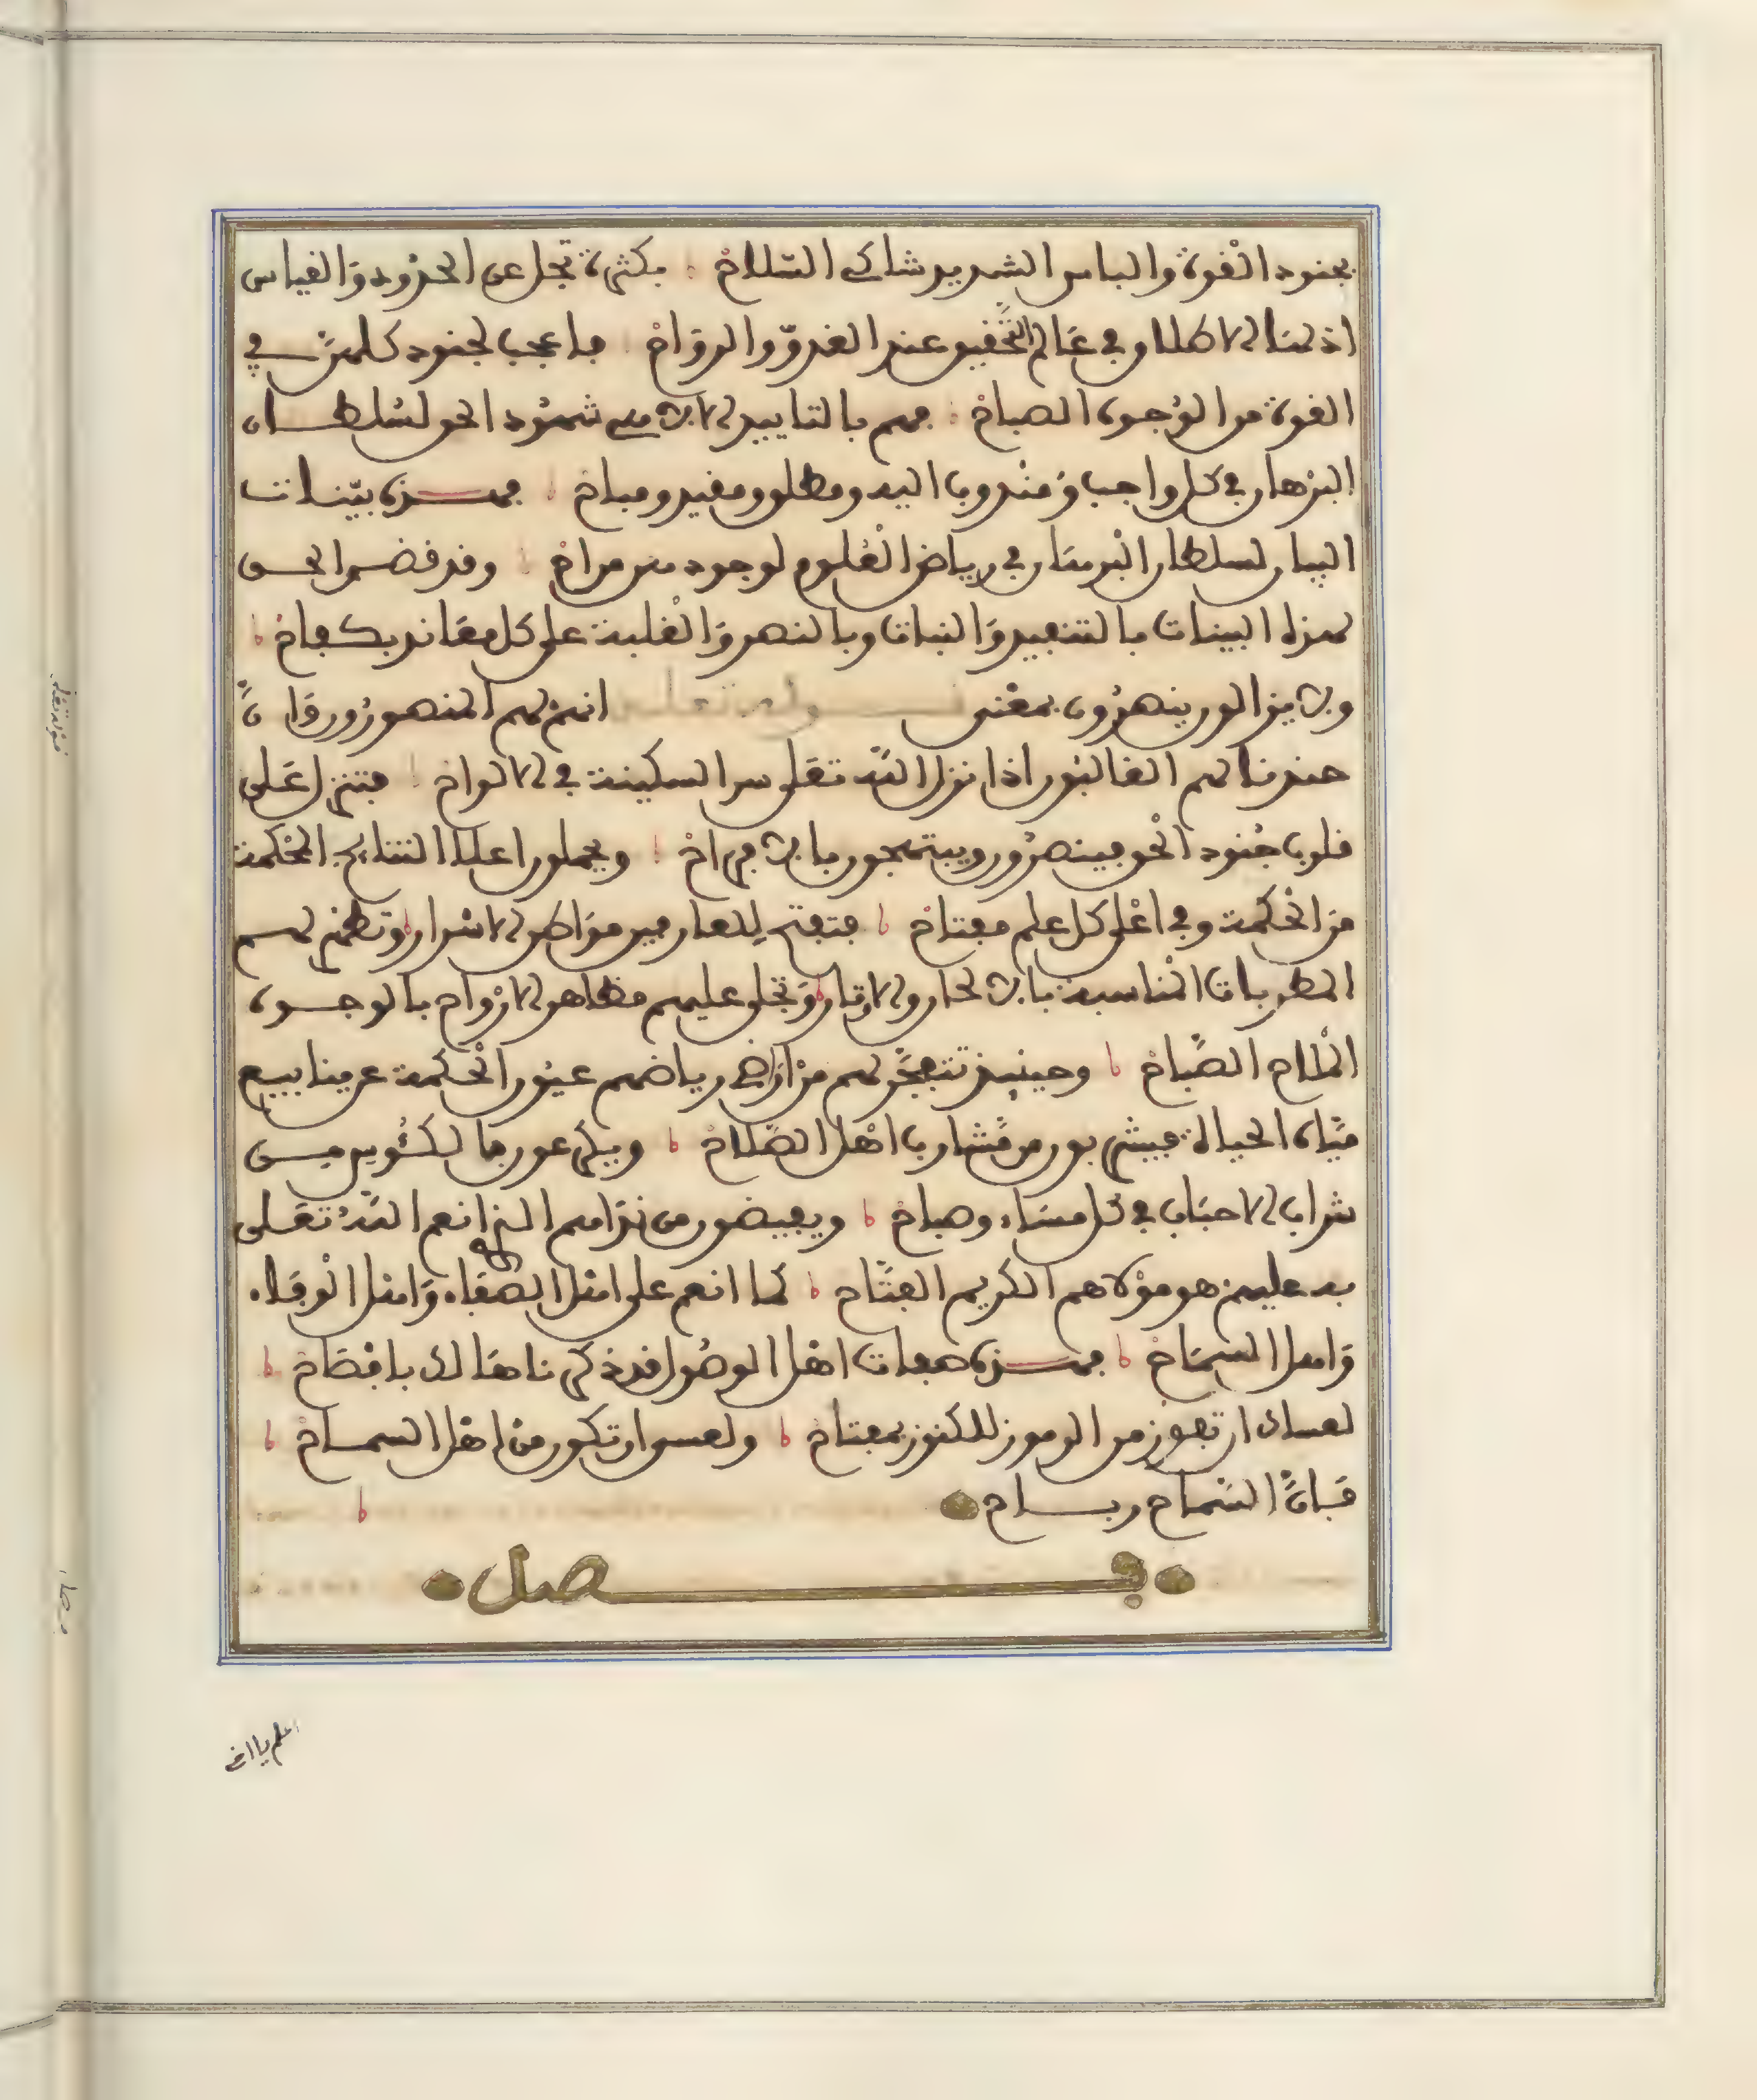 بجنود القوة والباس الشديد شاكي السلاح بكثرة تجل عن الحدود والقياس
اذ لها الاطلاق في عالم التحقيق عند الغدو والرواح فاعجب لجنود كلمة في
القوة من الوجوه الصباح فهم بالتاييد شهود الحق لسلطان
البرهان في كل واجب ومندوب اليه ومطلق ومقيد ومباح فهذه بينات
البيان لسلطان البرهان في رياض العلوم لوجوده من مراح وقد قضى الحق
لهذه البينات بالتنفيذ والثبات وبالنصر والغلبة على كل معاند بكفاح
ينصرون بمعنى قوله تعلى انهم لهم المنصورون وان
جندنا لهم الغالبون اذا نزل الله تعلى سر السكينة في الالواح فتنزل على
قلوب جنود الحق فينصرون ويبتهجون بالافراح ويحملون اعلا النتايج المحكمة
من الحكمة وفي اعلى كل علم مفتاح فتفتح للعارفين مواطن الاسرار وتظهر لهم
المطربات المناسبة بالالحان والاوتار وتجلى عليهم مظاهر الارواح بالوجوه
الملاح الصباح وحينيذ تتفجر لهم من اراضي رياضهم عيون الحكمة عن ينابيع
مياه الحياة فيشربون من مشارب اهل الصلاح ويكرعون بالكئوس من
شراب الاحباب في كل مساء وصباح ويفيضون من نداهم الذي انعم الله تعلى
به عليهم هو مولاهم الكريم الفتاح كما انعم على اهل الصفاء واهل الوفاء
واهل السماح فهذه صفات اهل الوصول قد ذكرناها لك بافصاح
لعساك ان تفوز من الرموز للكنوز بمفتاح ولعسى ان تكون من اهل السماح
فان السماح رباح
فصل
اعلم يا اخي